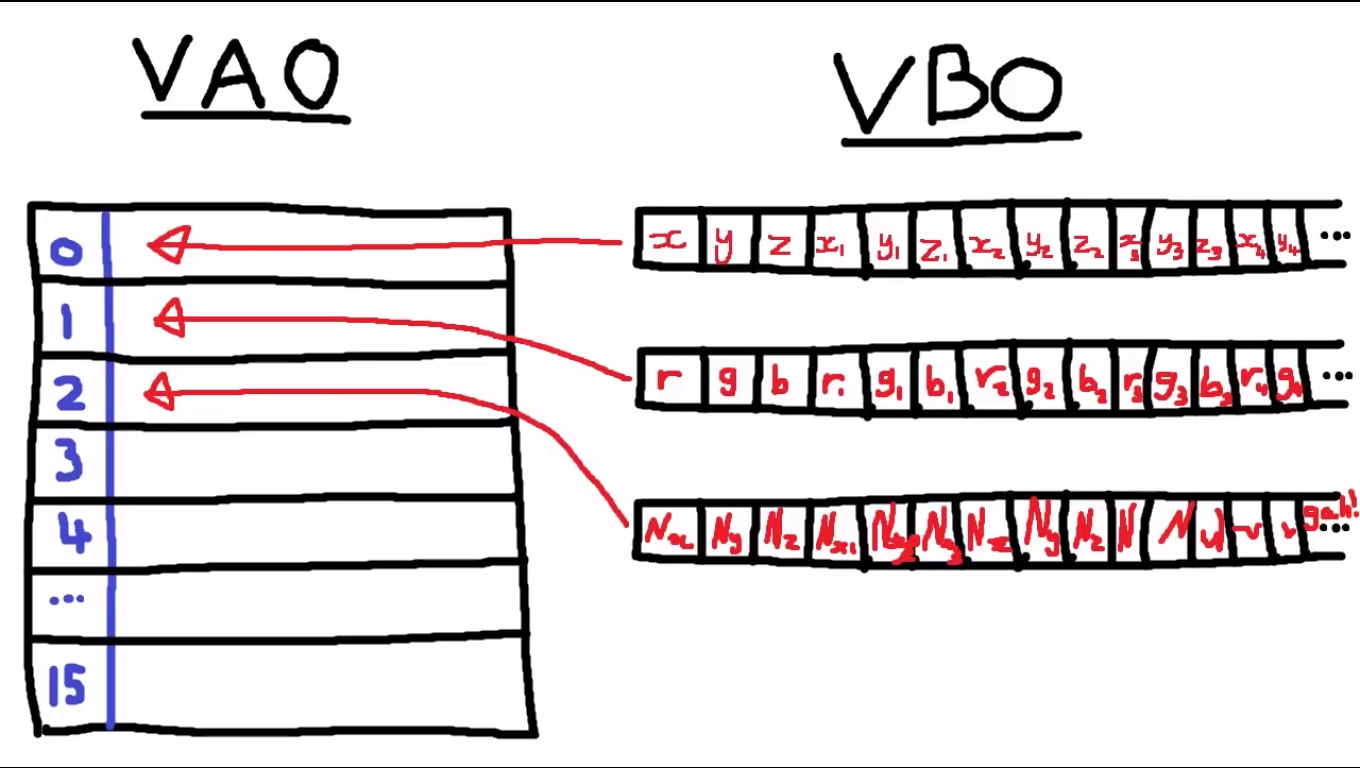 VAO
VBO
0
1
2
3
4
...
15
x y z x₁ y₁ z₁ x₂ y₂ z₂ x₃ y₃ z₃ x₄ y₄ ...
r g b r₁ g₁ b₁ r₂ g₂ b₂ r₃ g₃ b₃ r₄ g₄ ...
Nx Ny Nz Nx₁ N N N Ny Nz N N gah! ...